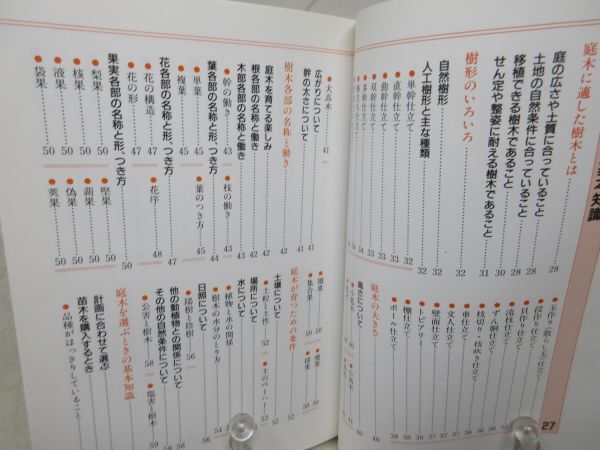 本知識
27
庭木に適した樹木とは
庭の広さや土質に合っていること……28
土地の自然条件に合っていること……28
移植できる樹木であること……30
せん定や整姿に耐える樹木であること……31
樹形のいろいろ……32
自然樹形……32
人工樹形と主な種類……32
●単幹仕立て……32
●直幹仕立て……33
●曲幹仕立て
●双幹仕立て
●多幹仕立て
●段作り仕立て
●貝作り仕立て
●流枝仕立て
●ずん胴仕立て
●枝切り・枝吹き仕立て
●車仕立て
●文人仕立て
●壁面仕立て
●トピアリー
●棚仕立て……38
●ポール仕立て……38
庭木の大きさ……40
高さについて……40
●大高木……41
広がりについて……41
幹の太さについて……41
樹木各部の名称と働き……42
庭木を育てる楽しみ……42
根各部の名称と働き……42
木部各部の名称と働き
●幹の働き……43
●枝の働き……43
葉各部の名称と形、つき方……44
●単葉……45
●葉のつき方……45
●複葉……45
花各部の名称と形、つき方
●花の構造……47
●花序……48
●花の形……47
果実各部の名称と形、つき方……50
●梨果……50
●堅果……50
●核果……50
●蒴果……50
●液果……50
●偽果……50
●袋果……50
●莢果……50
●集合果……50
庭木が育つための条件……52
土壌について……52
●土粒と土性……52
●土のペーハー……53
場所について
水について
●植物と水の関係……54
●樹木の水分のとり方……54
日照について……56
●陽樹と陰樹
他の動植物との関係について
その他の自然条件について……58
●公害と樹木……58
●塩害と樹木……59
庭木を選ぶときの基本知識
計画に合わせて選ぶ
苗木を購入するとき
●品種がはっきりしていること